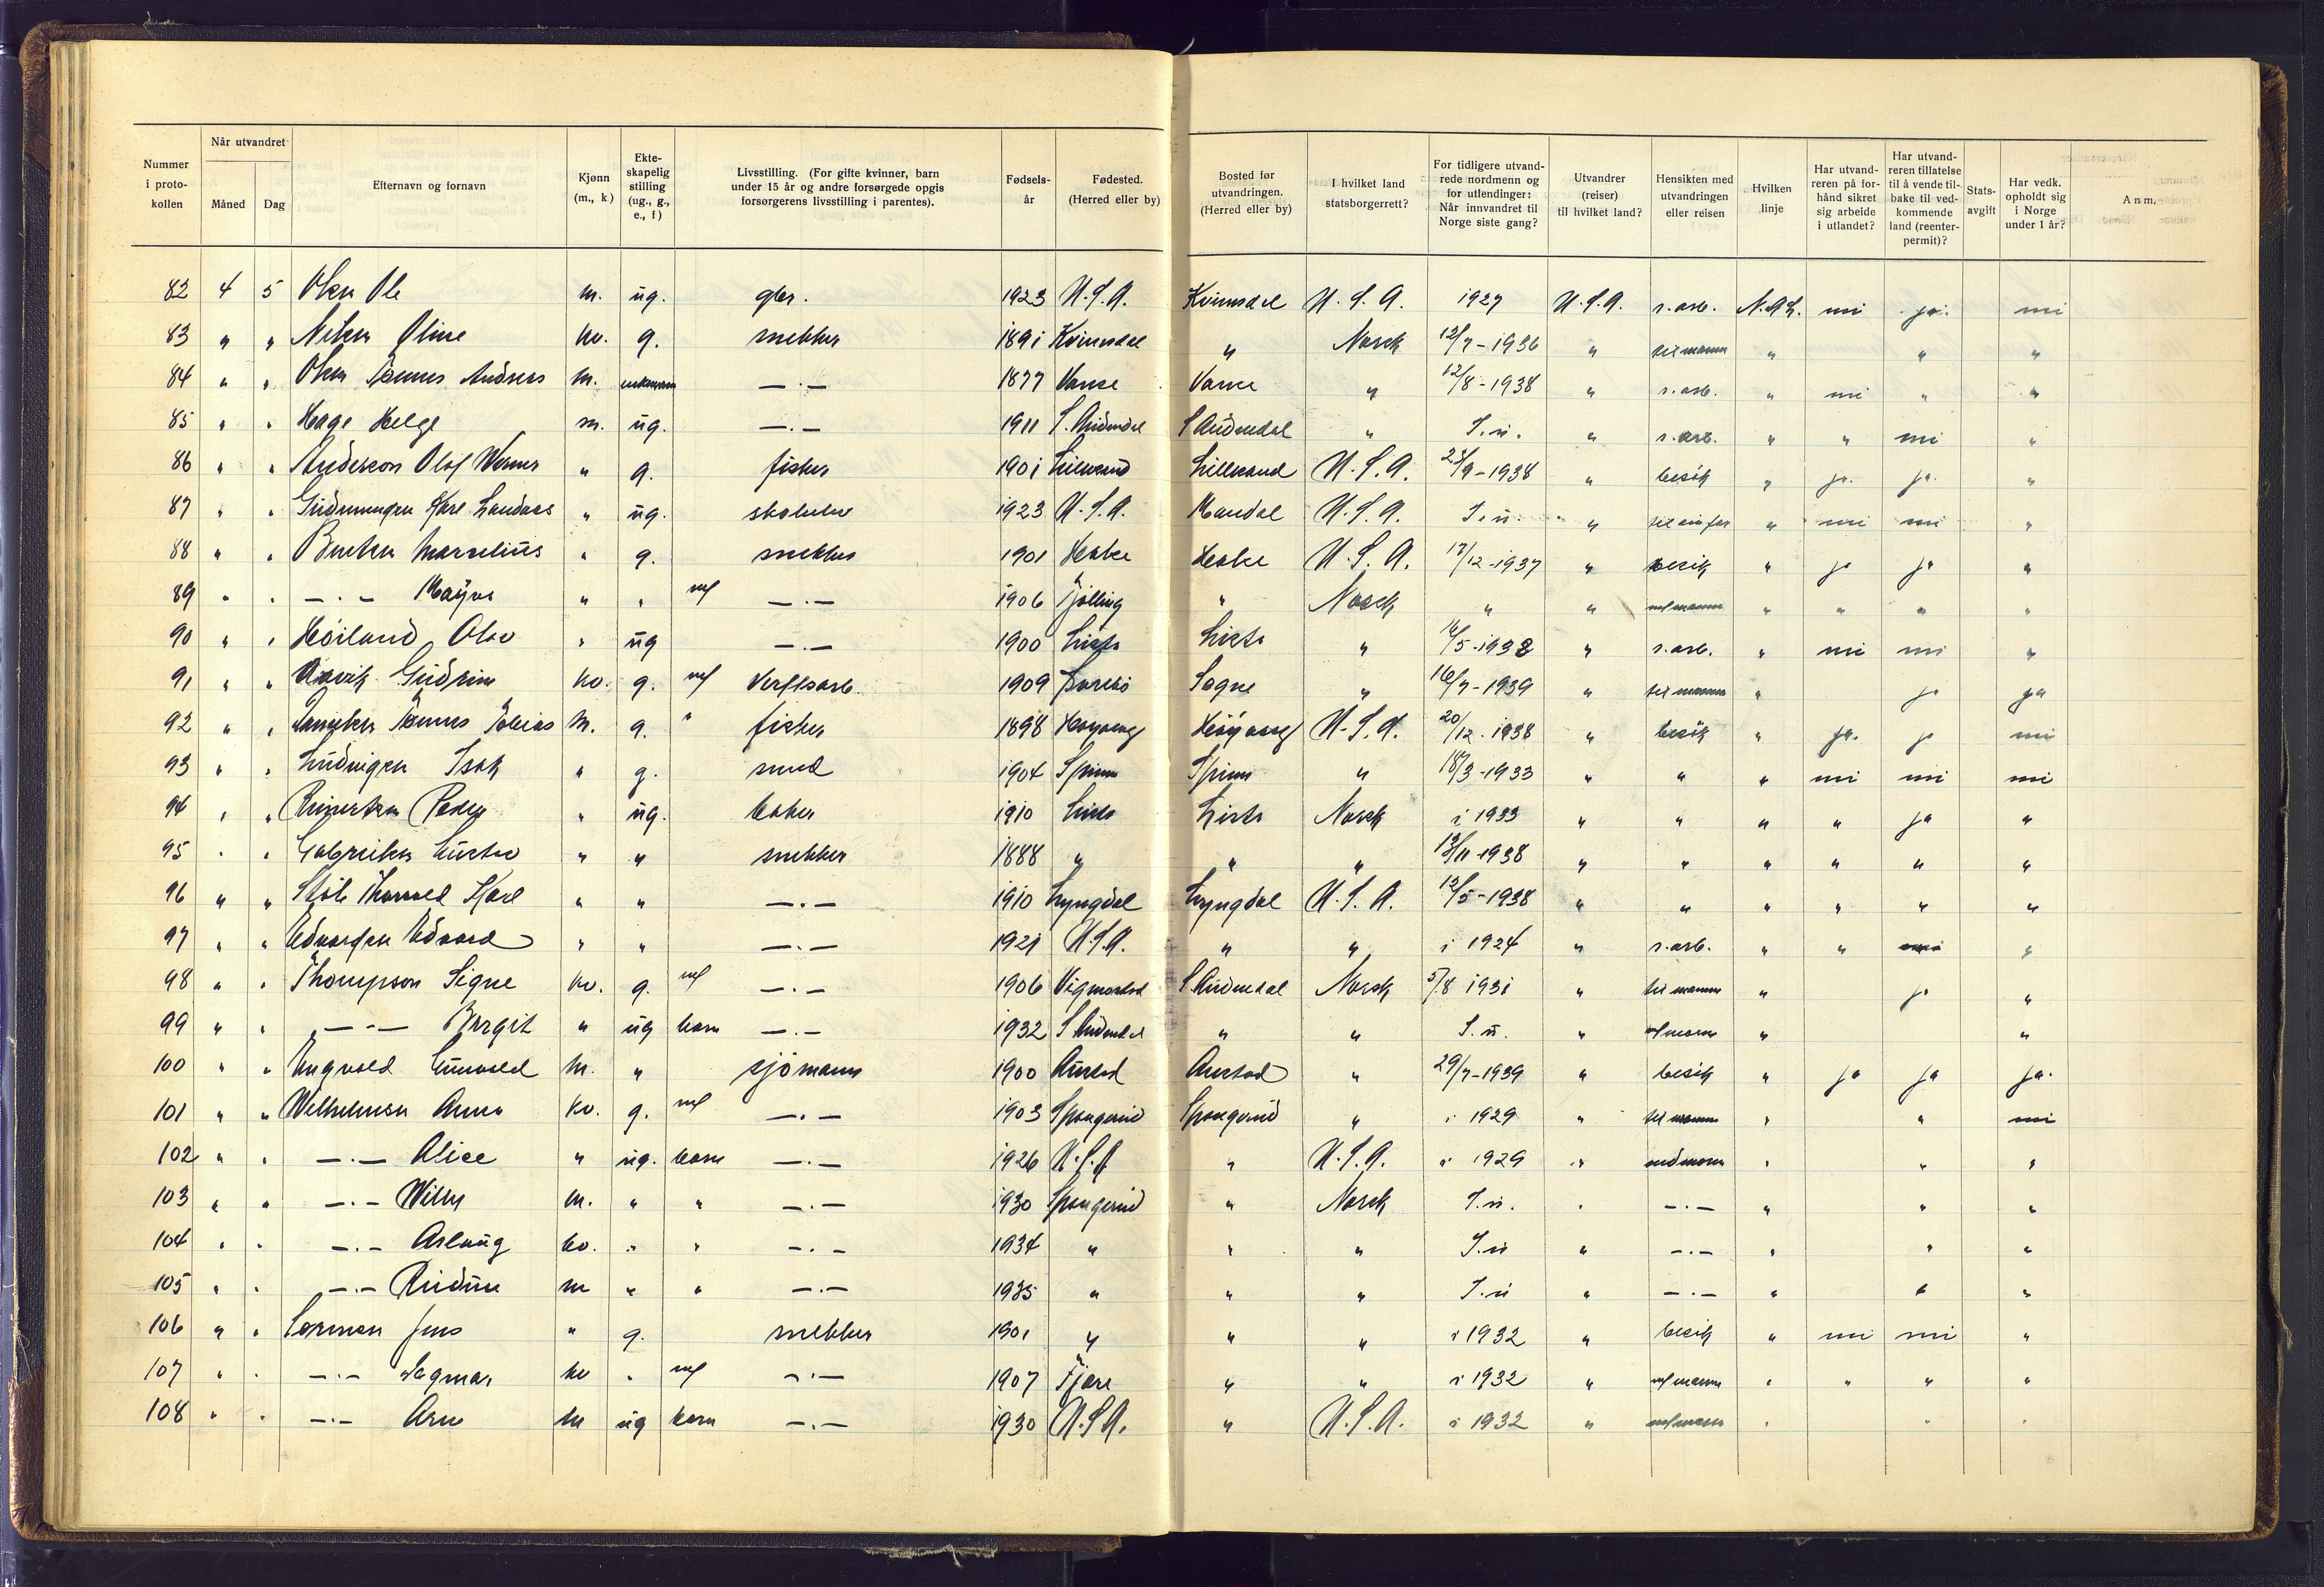 Nummer i proto- kollen
Når utvandret
Måned
Dag
Efternavn og fornavn
Kjønn (m., k)
Ekte- skapelig stilling (ug., g., e., f)
Livsstilling. (For gifte kvinner, barn under 15 år og andre forsørgede opgis forsørgerens livsstilling i parentes).
Fødsels- år
Fødested. (Herred eller by)
Bosted før utvandringen. (Herred eller by)
I hvilket land statsborgerrett?
For tidligere utvand- rede nordmenn og for utlendinger: Når innvandret til Norge siste gang?
Utvandrer (reiser) til hvilket land?
Hensikten med utvandringen eller reisen
Hvilken linje
Har utvand- reren på for- hånd sikret sig arbeide i utlandet?
Har utvand- reren tillatelse til å vende til- bake til ved- kommende land (reenter- permit)?
Stats- avgift
Har vedk. opholdt sig i Norge under 1 år?
Anm.
82 4 5 Olsen Ole m. ug. 1923 U.S.A. Kvinesdal U.S.A. 1927 U.S.A. s.arb. N.A.L. nei ja. nei
83 " " Nilsen Oline kv. g. snekker 1891 Kvinesdal " Norsk 12/7-1936 " til mann " " "
84 " " Olsen Tønnes Andreas m. enkemann —·— 1877 Vanse Vanse " 12/8-1938 " s.arb. " nei " "
85 " " Hage Helge m. ug. —·— 1911 S.Audnedal S.Audnedal " I.u. " s.arb. " " nei "
86 " " Anderson Olaf Werner " g. fisker 1901 Lillesand Lillesand U.S.A. 23/9-1938 " besøk " ja. ja. "
87 " " Gudmundsen Kåre " ug. skoleelev 1923 U.S.A. Mandal U.S.A. I.u. " " nei nei "
88 " " Berntsen Marselius " g. snekker 1901 U.S.A. 17/12-1937 " besök " ja ja "
89 " " —·— " " m/ —·— 1906 Tjølling " Norsk " " m/mann " " " "
90 " " Høiland Olav " ug —·— 1900 Lista Lista " 16/5-1938 " s.arb. " nei nei "
91 " " Gudrun kv. g. m/ Verftsarb. 1909 Søgne " 16/7-1939 " til mann " ja ja
92 " " Tønnes Tobias m. g. " fisker 1898 U.S.A. 20/12-1938 " besøk " ja. ja nei
93 " " Ludvigsen Isak " g. smed 1904 Spinn Spinn " 18/3-1933 " " " nei nei nei
94 " " Reinertsen Peder " ug. baker 1910 Lista Lista Norsk i 1933 " " " " ja "
95 " " Gabrielsen Gustav " " snekker 1888 " " " 13/11-1938 " " " " " "
96 " " Thorvald Karl " " —·— 1910 Lyngdal Lyngdal U.S.A. 12/5-1938 " " " " " "
97 " " Edvardsen Edvard " " —·— 1921 U.S.A. " " i 1924 " s.arb. " " "
98 " " Thompson Signe kv. g. m/ —·— 1906 Vigmostad S.Audnedal Norsk 5/8 1931 " til mann " ja "
99 " " —·— Bergit " ug barn —·— 1932 S.Audnedal " " I.u. " " "
100 " " Engvald Gunvald m. " sjömann 1900 Austad Austad " 29/7-1939 " besök " ja ja ja.
101 " " Wilhelmsen Anna kv. g. m/ —·— 1903 Spangereid Spangereid " i 1929 " til mann " " nei
102 " " —·— Alice " ug. barn —·— 1926 U.S.A " U.S.A. i 1929 " " " "
103 " " —·— Willy m. " " —·— 1930 Spangereid " Norsk I.u. " —·— " " "
104 " " —·— Aslaug kv. " " —·— 1934 " " " I.u " —·— " " "
105 " " —·— Reidun m " " —·— 1935 " " " I.u " —·— " " "
106 " " Jens " g. snekker 1901 " " " i 1932 " besök " nei nei "
107 " " —·— Dagmar kv " m/ —·— 1907 Fjære " " i 1932 " m/mann " " " "
108 " " —·— Arne m ug barn —·— 1930 U.S.A. " U.S.A. i 1932 " " " "